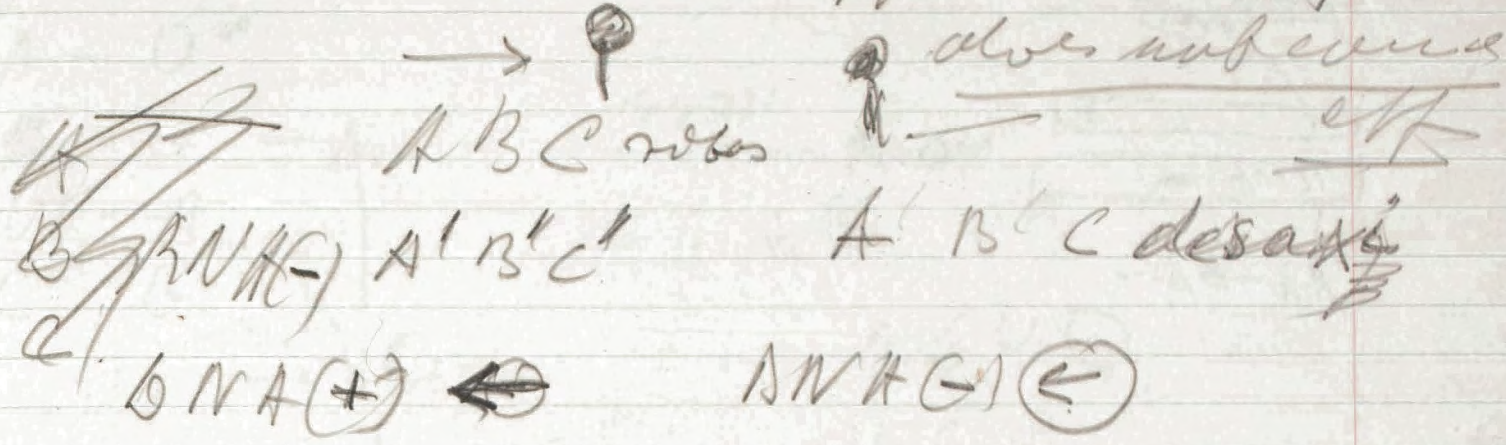 →
does not come
A B C ribos
A
B RNA(-) A' B' C' A' B' C desoxi
C
DNA(+) ← DNA(-) ←